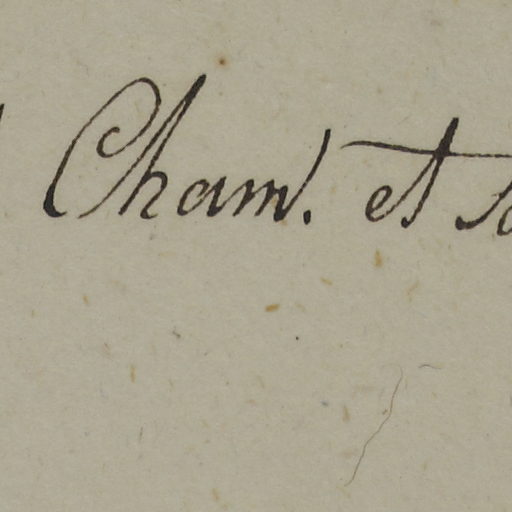 Cham. et